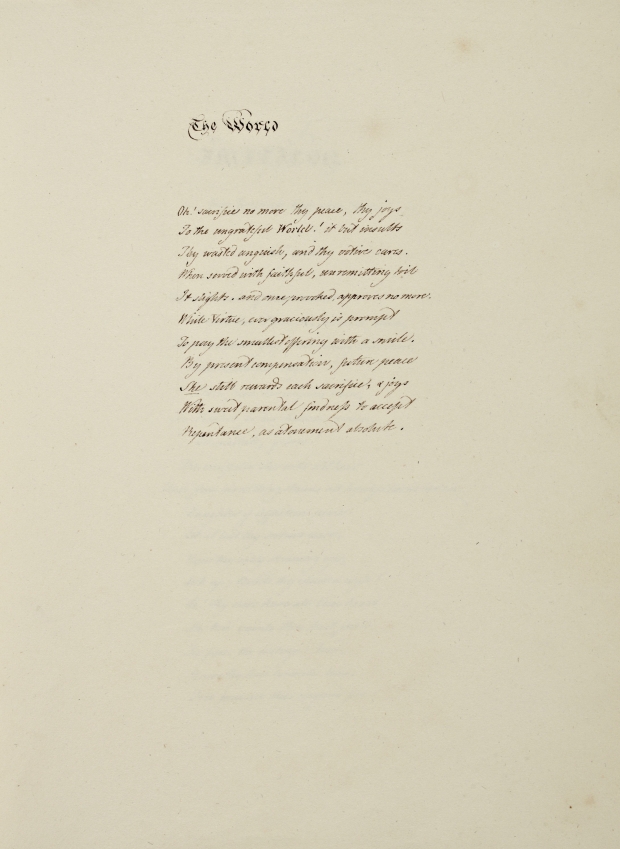 The World
Oh! sacrifice no more thy peace, thy joys
To the ungrateful World! it but insults
Thy wasted anguish, and thy votive cares.
When served with faithful, unremitting toil
It slights. and once provoked, approves no more.
While Virtue, ever graciously is prompt
To pay the smallest offering with a smile.
By present compensation, peace
She still rewards each sacrifice; & joys
With sweet parental fondness to accept
Repentance, as atonement absolute.